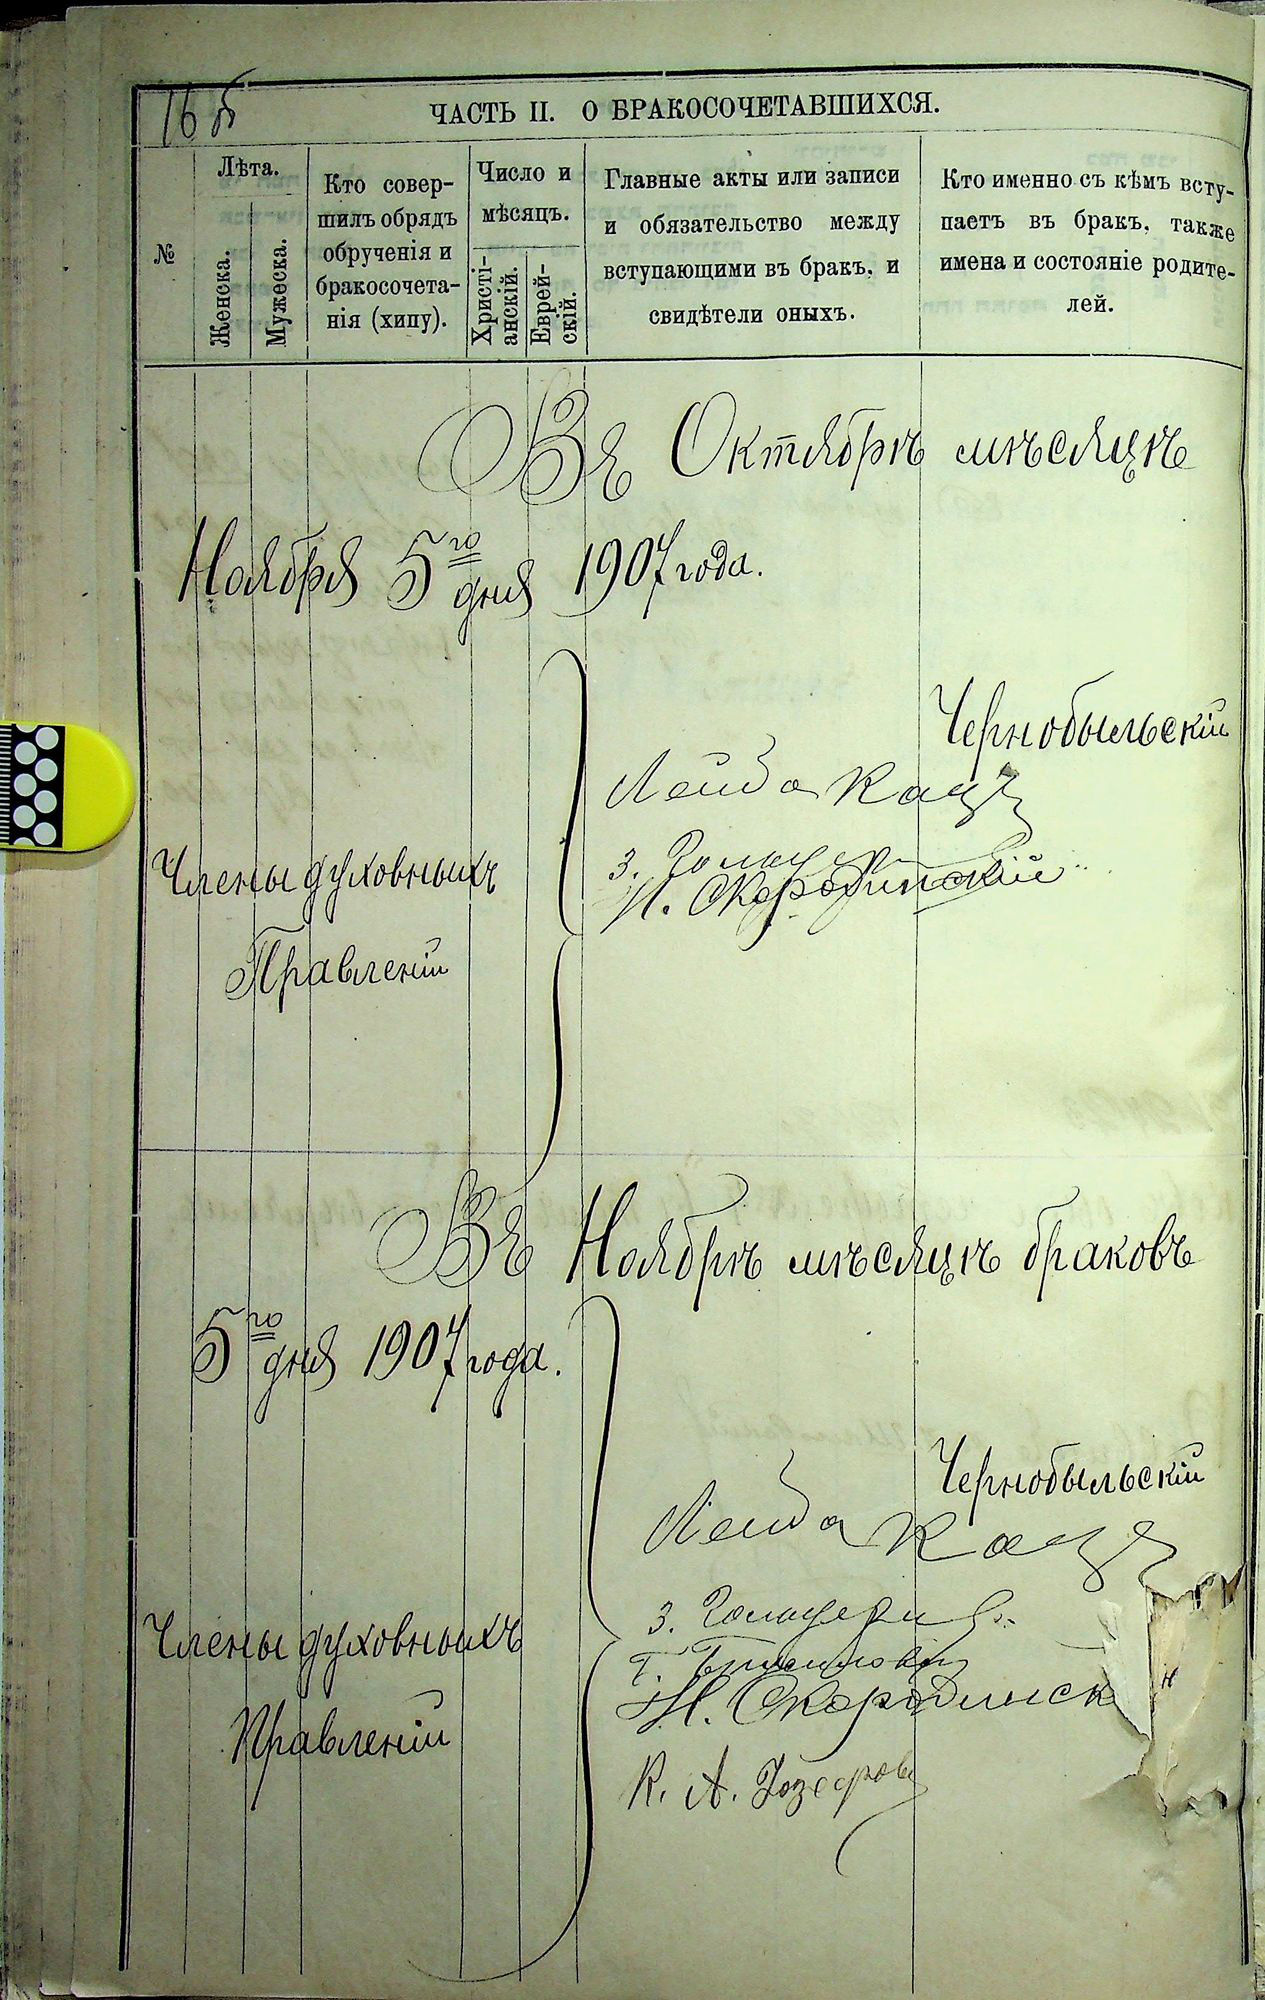 16 б
ЧАСТЬ II. О БРАКОСОЧЕТАВШИХСЯ.
№
Лѣта.
Женска.
Мужеска.
Кто совер-
шилъ обрядъ
обрученія и
бракосочета-
нія (хипу).
Число и
мѣсяцъ.
Христі-
анскій.
Еврей-
скій.
Главные акты или записи
и обязательство между
вступающими въ бракъ, и
свидѣтели оныхъ.
Кто именно съ кѣмъ всту-
паетъ въ бракъ, также
имена и состояніе родите-
лей.
Въ Октябрѣ мѣсяцѣ
Ноября 5го дня 1907 года.
Чернобыльскій
Лейба Кацъ
З.
Н. Скородинскій
Члены духовныхъ
Правленій
Въ Ноябрѣ мѣсяцѣ браковъ
5го дня 1907 года.
Чернобыльскій
Лейба Кацъ
З.
Т.
Н. Скородинск
Члены духовныхъ
Правленій
К. А. Іозефов